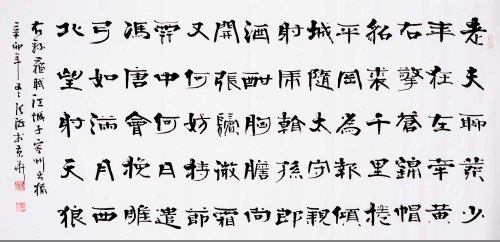 老夫聊發少
年狂左牽黃
右擎蒼錦帽
貂裘千里捲
平岡為報傾
城隨太守親
射虎看孫郎
酒酣胸膽尚
開張鬢微霜
又何妨持節
雲中何日遣
馮唐會挽雕
弓如滿月西
北望射天狼
右錄蘇軾江城子密州出獵
辛卯年